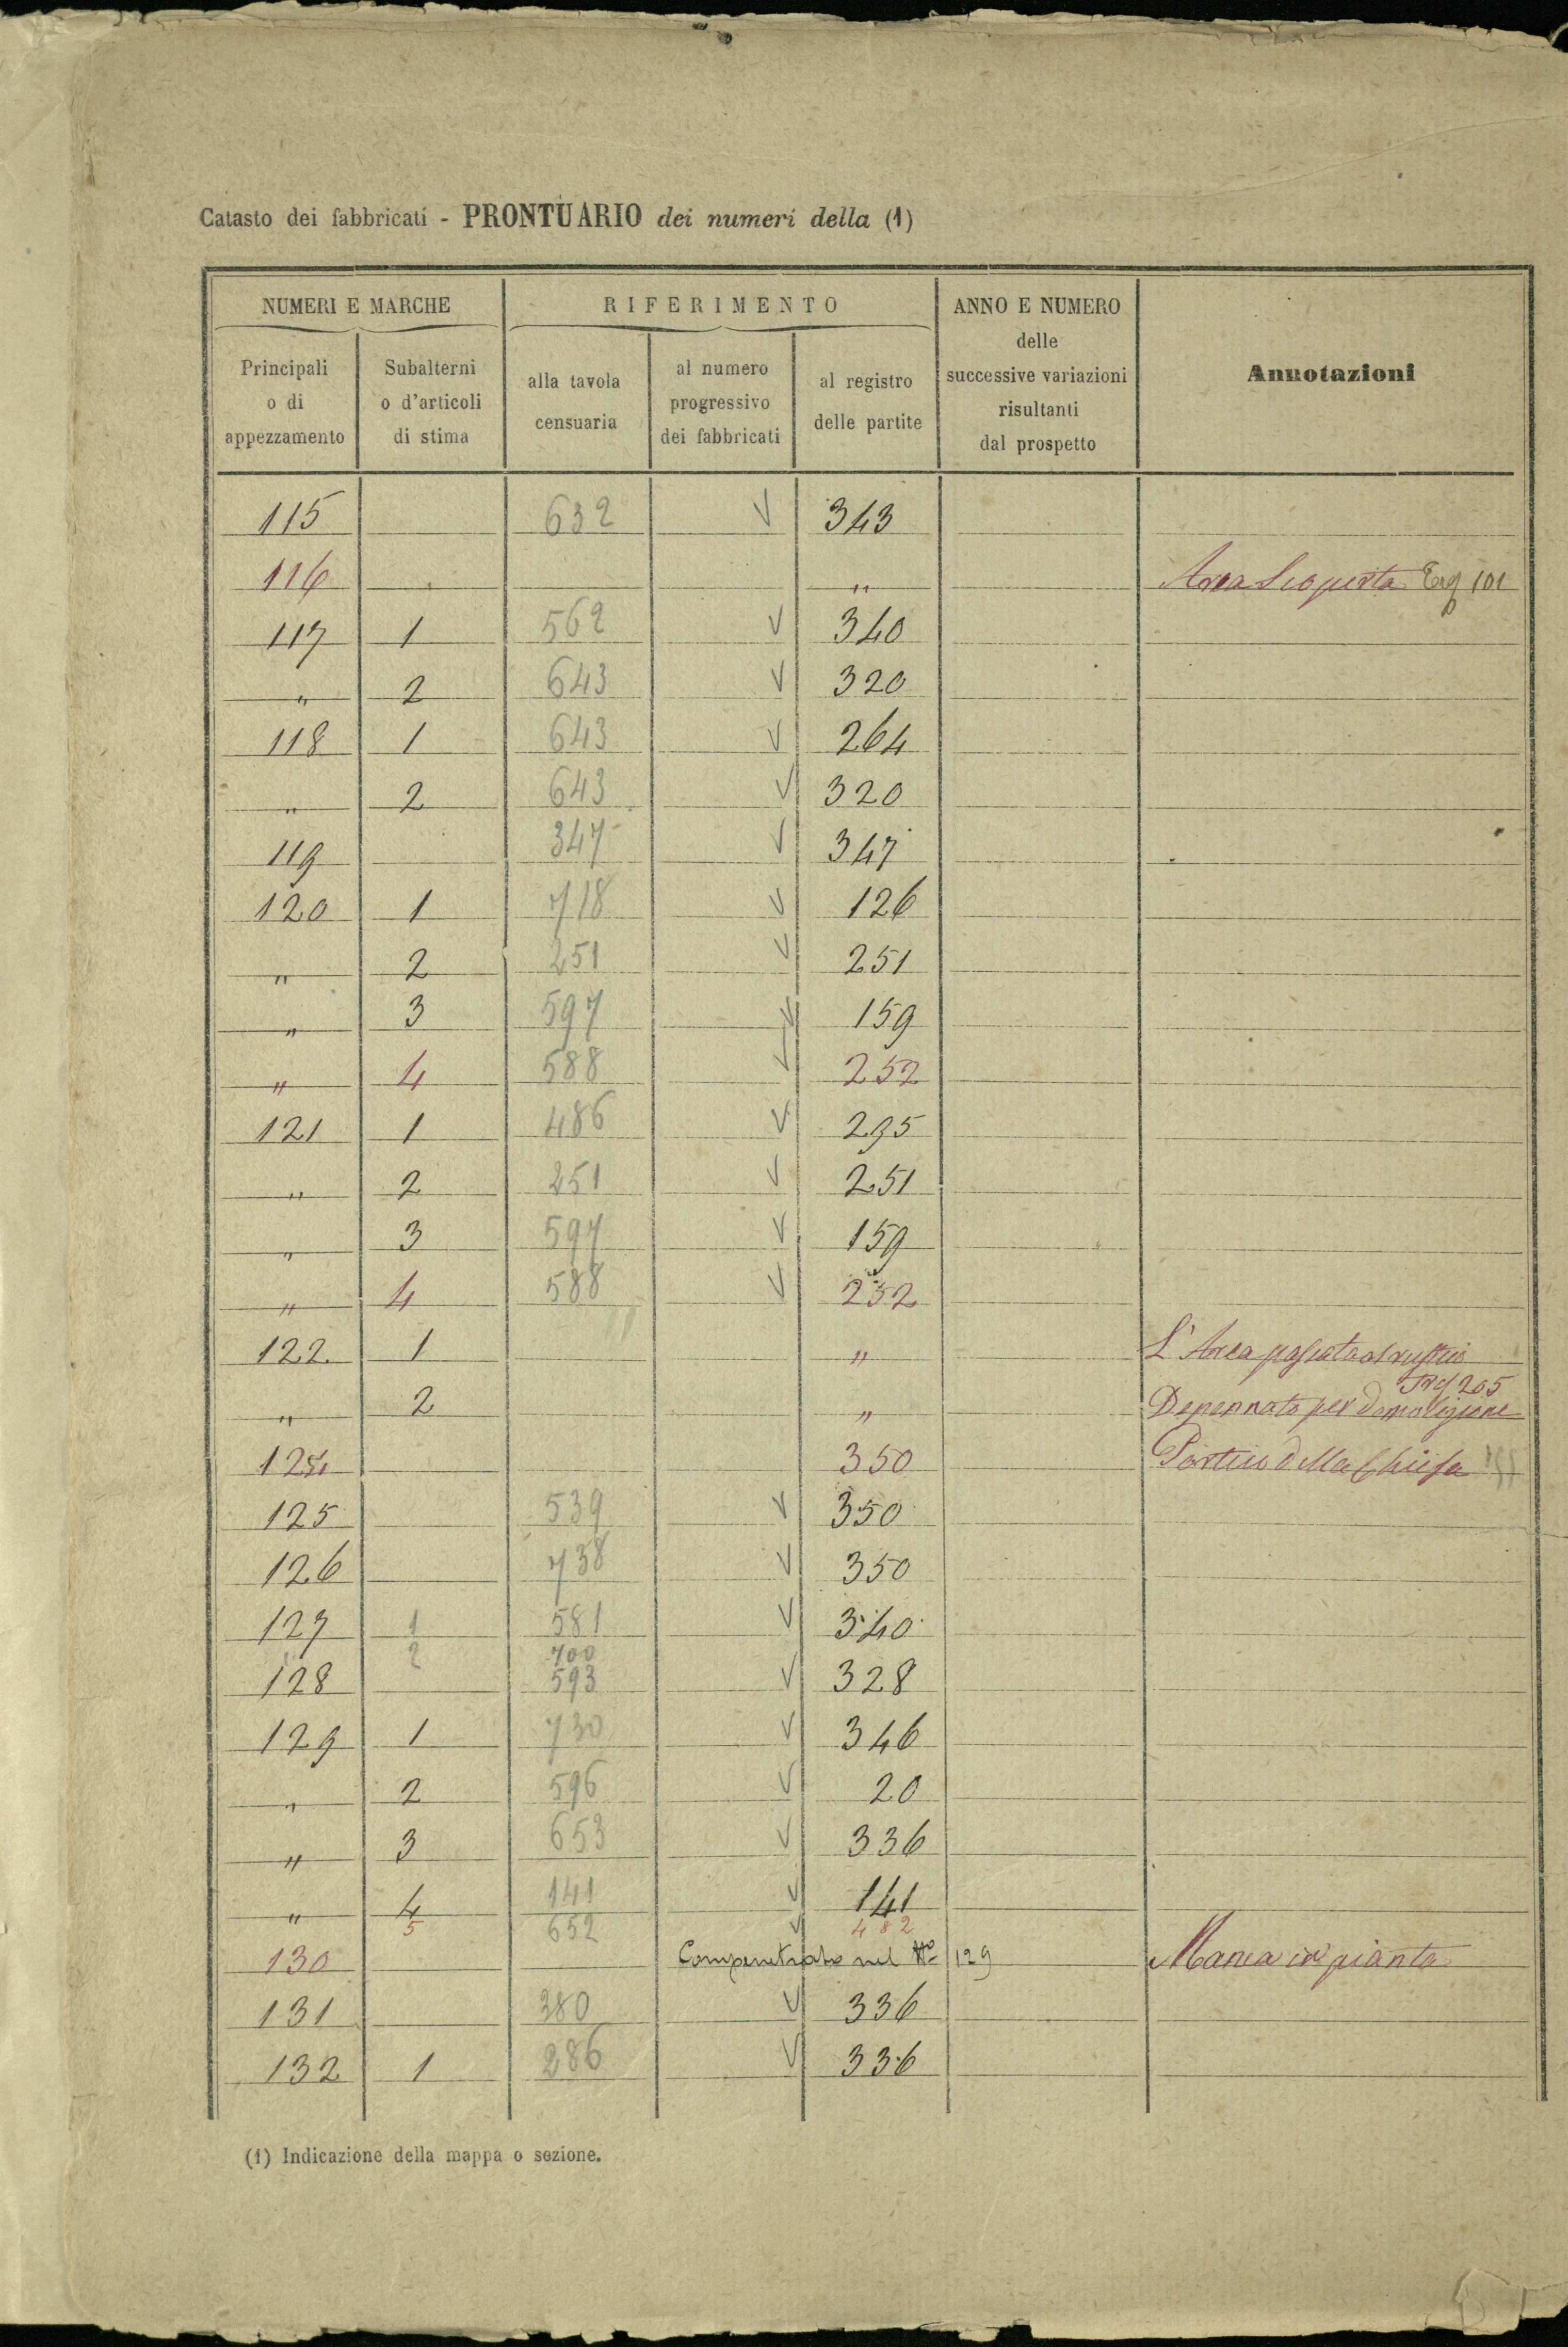 Catasto dei fabbricati - PRONTUARIO dei numeri della (1)
NUMERI E MARCHE
Principali o di appezzamento
Subalterni o d'articoli di stima
RIFERIMENTO
alla tavola censuaria
al numero progressivo dei fabbricati
al registro delle partite
ANNO E NUMERO delle successive variazioni risultanti dal prospetto
Annotazioni
115 632 V 343
116 „ Area Scoperta Erq 101
117 1 562 V 340
„ 2 643 V 320
118 1 643 V 264
„ 2 643 V 320
119 347 V 347
120 1 718 V 126
„ 2 251 V 251
„ 3 597 V 159
„ 4 588 V 252
121 1 486 V 295
„ 2 251 V 251
„ 3 597 V 159
„ 4 588 V 252
122 1 „ L'Area passata al rustico
„ 2 „ Depennato per Demolizione 205
124 350 Portico della Chiesa
125 539 V 350
126 738 V 350
127 1 581 V 340
2 700
128 593 V 328
129 1 730 V 346
„ 2 596 V 20
„ 3 653 V 336
„ 4 141 V 141
5 652 V 482
130 Compenetrato nel N° 129 Manca in pianta
131 380 V 336
132 1 286 V 336
(1) Indicazione della mappa o sezione.